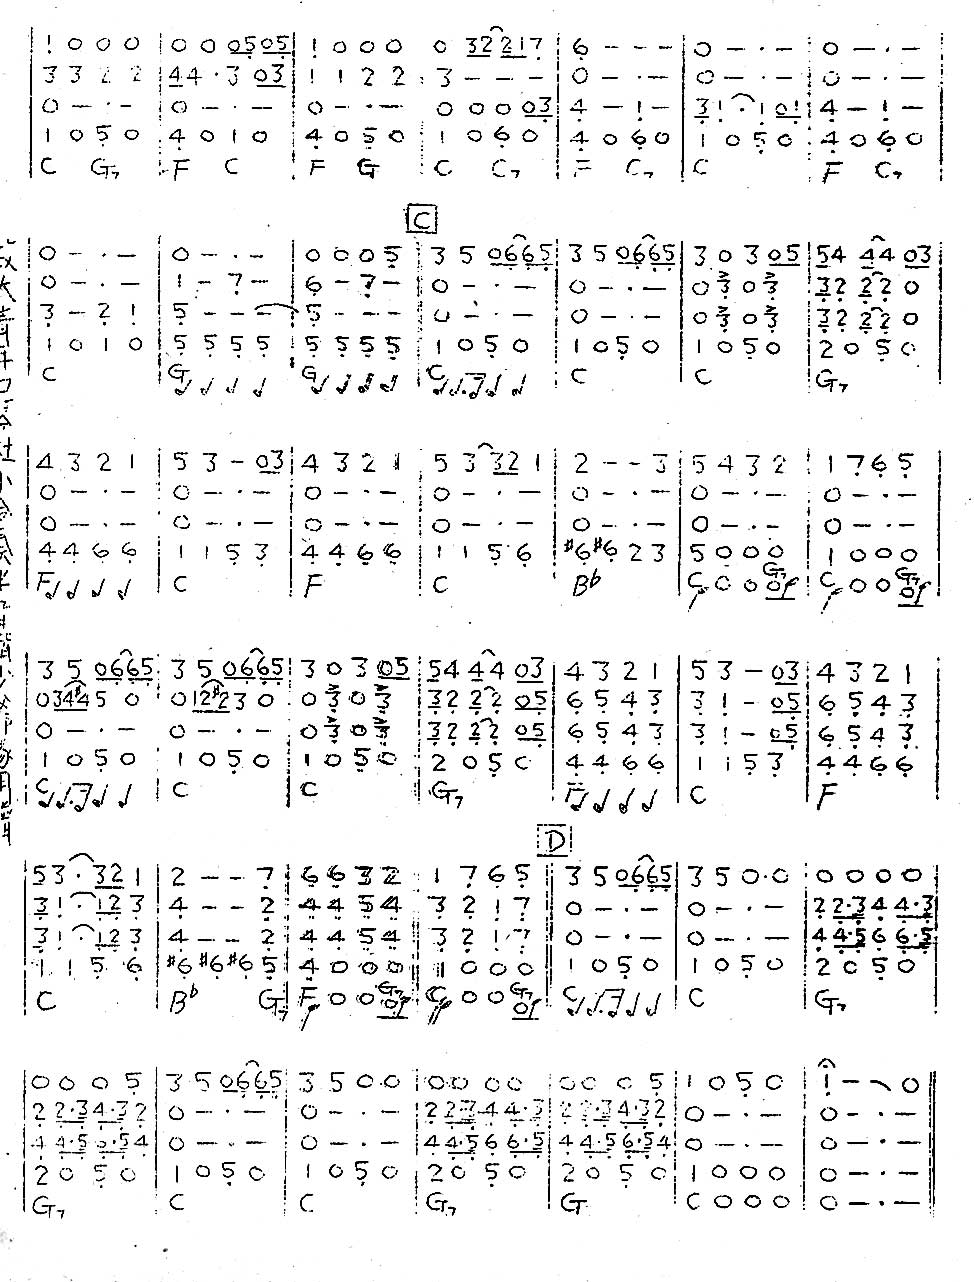 1 0 0 0 | 0 0 05 05 | 1 0 0 0 | 0 32 217 | 6 - - - | 0 - · - | 0 - · - |
3 3 2 2 | 44 · 3 03 | 1 1 2 2 | 3 - - - | 0 - · - | 0 - · - | 0 - · - |
0 - · - | 0 - · - | 0 - · - | 0 0 0 03 | 4 - 1 - | 31 · 1 01 | 4 - 1 - |
1 0 5 0 | 4 0 1 0 | 4 0 5 0 | 1 0 6 0 | 4 0 6 0 | 1 0 5 0 | 4 0 6 0 |
C G7 | F C | F G | C C7 | F C7 | C | F C7 |
C
0 - · - | 0 - · - | 0 0 0 5 | 3 5 0665 | 3 5 0665 | 3 0 3 05 | 54 44 03 |
0 - · - | 1 - 7 - | 6 - 7 - | 0 - · - | 0 - · - | 0 3 0 3 | 32 22 0 |
3 - 2 1 | 5 - - - | 5 - - - | 0 - · - | 0 - · - | 0 3 0 3 | 32 22 0 |
1 0 1 0 | 5 5 5 5 | 5 5 5 5 | 1 0 5 0 | 1 0 5 0 | 1 0 5 0 | 2 0 5 0 |
C | G | G | C | C | C | G7 |
4 3 2 1 | 5 3 - 03 | 4 3 2 1 | 5 3 32 1 | 2 - - 3 | 5 4 3 2 | 1 7 6 5 |
0 - · - | 0 - · - | 0 - · - | 0 - · - | 0 - · - | 0 - · - | 0 - · - |
0 - · - | 0 - · - | 0 - · - | 0 - · - | 0 - · - | 0 - · - | 0 - · - |
4 4 6 6 | 1 1 5 3 | 4 4 6 6 | 1 1 5 6 | #6 #6 2 3 | 5 0 0 0 | 1 0 0 0 |
F | C | F | C | Bb | C 0 0 G7 0f | C 0 0 G7 0f |
3 5 0665 | 3 5 0665 | 3 0 3 05 | 54 44 03 | 4 3 2 1 | 5 3 - 03 | 4 3 2 1 |
034#4 5 0 | 012#2 3 0 | 0 3 0 3 | 32 22 05 | 6 5 4 3 | 3 1 - 05 | 6 5 4 3 |
0 - · - | 0 - · - | 0 3 0 3 | 32 22 05 | 6 5 4 3 | 3 1 - 05 | 6 5 4 3 |
1 0 5 0 | 1 0 5 0 | 1 0 5 0 | 2 0 5 0 | 4 4 6 6 | 1 1 5 3 | 4 4 6 6 |
C | C | C | G7 | F | C | F |
D
53 · 32 1 | 2 - - 7 | 6 6 3 2 | 1 7 6 5 | 3 5 0665 | 3 5 0 · 0 | 0 0 0 0 |
31 · 12 3 | 4 - - 2 | 4 4 5 4 | 3 2 1 7 | 0 - · - | 0 - · - | 2 2·3 4 4·3 |
31 · 12 3 | 4 - - 2 | 4 4 5 4 | 3 2 1 7 | 0 - · - | 0 - · - | 4 4·5 6 6·5 |
1 1 5 6 | #6 #6 #6 5 | 4 0 0 0 | 1 0 0 0 | 1 0 5 0 | 1 0 5 0 | 2 0 5 0 |
C | Bb G7 | F 0 0 G7 0f | C 0 0 G7 0f | C | C | G7 |
0 0 0 5 | 3 5 0665 | 3 5 0 0 | 0 0 0 0 | 0 0 0 5 | 1 0 5 0 | 1 - - 0 ||
2 2·3 4·3 2 | 0 - · - | 0 - · - | 2 2·3 4 4·3 | 2 2·3 4·3 2 | 0 - · - | 0 - · - ||
4 4·5 6·5 4 | 0 - · - | 0 - · - | 4 4·5 6 6·5 | 4 4·5 6·5 4 | 0 - · - | 0 - · - ||
2 0 5 0 | 1 0 5 0 | 1 0 5 0 | 2 0 5 0 | 2 0 5 0 | 1 0 0 0 | 0 - · - ||
G7 | C | C | G7 | G | C 0 0 0 | 0 - · - ||